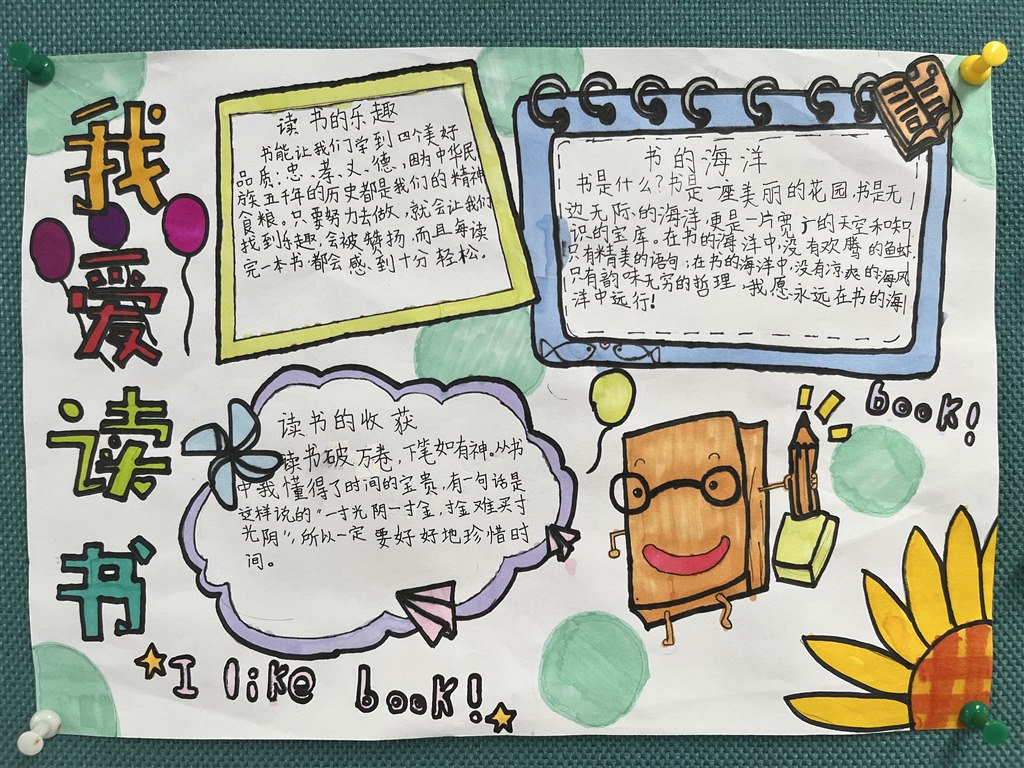 我爱读书
读书的乐趣
书能让我们学到四个美好
品质:忠、孝、义、德,因为中华民
族五千年的历史都是我们的精神
食粮。只要努力去做,就会让我们
找到乐趣,会被赞扬,而且每读
完一本书都会感到十分轻松。
书的海洋
书是什么?书是一座美丽的花园,书是无
边无际的海洋,更是一片宽广的天空和知
识的宝库。在书的海洋中,没有欢腾的鱼虾,
只有精美的语句;在书的海洋中,没有凉爽的海风
只有韵味无穷的哲理。我愿永远在书的海
洋中远行!
读书的收获
读书破万卷,下笔如有神。从书
中我懂得了时间的宝贵,有一句话是
这样说的“一寸光阴一寸金,寸金难买寸
光阴”,所以一定要好好地珍惜时
间。
book!
I like book!